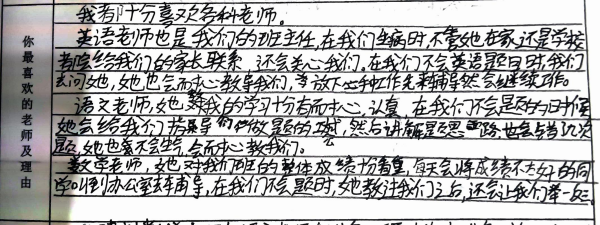 你最喜欢的老师及理由
我都十分喜欢各科老师。
英语老师也是我们的班主任,在我们生病时,不管她在家还是学校
都会给我们的家长联系,还会关心我们。在我们不会英语题目时,我们
去问她,她也会耐心教导我们,放下工作先来辅导然后继续工作。
语文老师,她对我的学习十分有耐心、认真,在我们不会题的时候
她会给我们指导做题的,然后讲解题思路也会
题,她也会耐心教我们。
数学老师,她对我们班的整体成绩十分看重,每天会将成绩不太好的同
学叫到办公室辅导,在我们不会题时,她教过我们之后,还会让我们举一反三